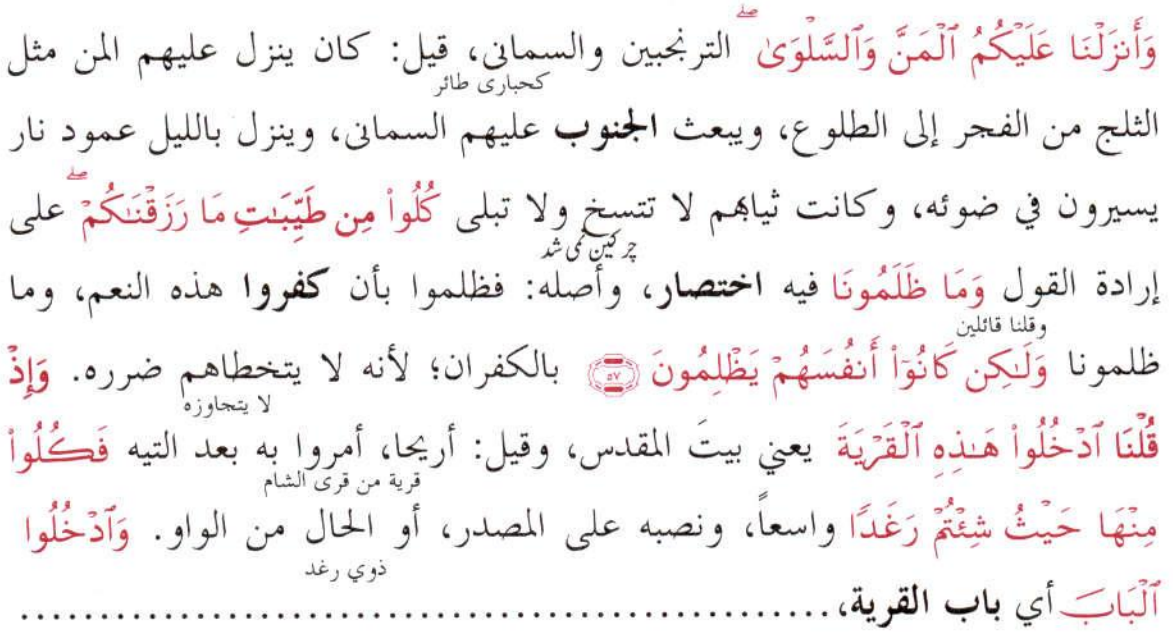 وَأَنزَلْنَا عَلَيْكُمُ ٱلْمَنَّ وَٱلسَّلْوَىٰ ۖ الترنجبين والسمانى، قيل: كان ينزل عليهم المن مثل
كحبارى طائر
الثلج من الفجر إلى الطلوع، ويبعث الجنوب عليهم السمانى، وينزل بالليل عمود نار
يسيرون في ضوئه، وكانت ثيابهم لا تتسخ ولا تبلى كُلُوا۟ مِن طَيِّبَـٰتِ مَا رَزَقْنَـٰكُمْ ۖ على
چرکین نمی شد
إرادة القول وَمَا ظَلَمُونَا فيه اختصار، وأصله: فظلموا بأن كفروا هذه النعم، وما
وقلنا قائلين
ظلمونا وَلَـٰكِن كَانُوٓا۟ أَنفُسَهُمْ يَظْلِمُونَ ۝٥٧ بالكفران؛ لأنه لا يتخطاهم ضرره. وَإِذْ
لا يتجاوزه
قُلْنَا ٱدْخُلُوا۟ هَـٰذِهِ ٱلْقَرْيَةَ يعني بيتَ المقدس، وقيل: أريحا، أمروا به بعد التيه فَكُلُوا۟
قرية من قرى الشام
مِنْهَا حَيْثُ شِئْتُمْ رَغَدًا واسعاً، ونصبه على المصدر، أو الحال من الواو. وَٱدْخُلُوا
ذوي رغد
ٱلْبَابَ أي باب القرية، ....................................................